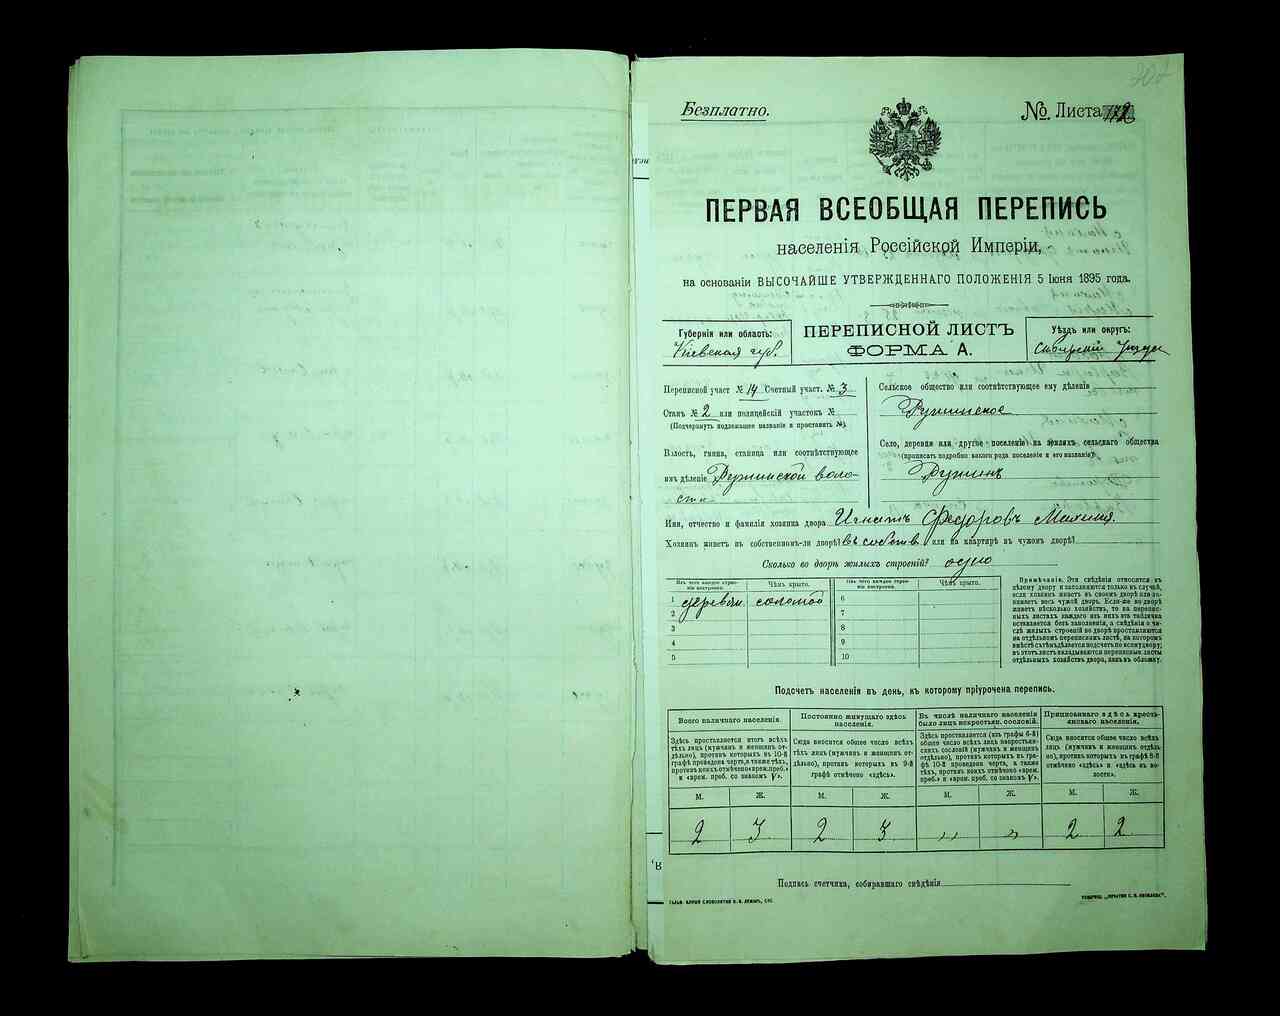 Безплатно.
№ Листа
ПЕРВАЯ ВСЕОБЩАЯ ПЕРЕПИСЬ
населенія Россійской Имперіи,
на основаніи ВЫСОЧАЙШЕ УТВЕРЖДЕННАГО ПОЛОЖЕНІЯ 5 Іюня 1895 года.
Губернія или область:
Кіевская губ.
ПЕРЕПИСНОЙ ЛИСТЪ
ФОРМА А.
Уѣздъ или округъ:
Переписной участ № 14 Счетный участ. № 3
Станъ № 2 или полицейскій участокъ №
(Подчеркнуть подлежащее названіе и проставить №).
Волость, гмина, станица или соотвѣтствующее
имъ дѣленіе Ружинской воло-
сти
Сельское общество или соотвѣтствующее ему дѣленіе
Ружинское
Село, деревня или другое поселеніе на земляхъ сельскаго общества
(прописать подробно какого рода поселеніе и его названіе)
Ружинъ
Имя, отчество и фамилія хозяина двора Игнатъ Федоровъ
Хозяинъ живетъ въ собственномъ-ли дворѣ? въ собств. или на квартирѣ въ чужомъ дворѣ?
Сколько во дворѣ жилыхъ строеній? одно
Изъ чего каждое строеніе построено. Чѣмъ крыто. Изъ чего каждое строеніе построено. Чѣмъ крыто.
1 деревян. соломой 6
2 7
3 8
4 9
5 10
Примѣчаніе. Эти свѣдѣнія относятся къ
цѣлому двору и заполняются только въ случаѣ,
если хозяинъ живетъ въ своемъ дворѣ или за-
нимаетъ весь чужой дворъ. Если-же во дворѣ
живетъ нѣсколько хозяйствъ, то на перепис-
ныхъ листахъ каждаго изъ нихъ эта табличка
оставляется безъ заполненія, а свѣдѣнія о чи-
слѣ жилыхъ строеній во дворѣ проставляются
на отдѣльномъ переписномъ листѣ, на которомъ
вмѣстѣ съ тѣмъ дѣлается подсчетъ по всему двору;
въ этотъ листъ вкладываются переписные листы
отдѣльныхъ хозяйствъ двора, какъ въ обложку.
Подсчетъ населенія въ день, къ которому пріурочена перепись.
Всего наличнаго населенія.
Здѣсь проставляется итогъ всѣхъ
тѣхъ лицъ (мужчинъ и женщинъ от-
дѣльно), противъ которыхъ въ 10-й
графѣ проведена черта, а также тѣхъ,
противъ коихъ отмѣчено «врем. преб.»
и «врем. преб. со знакомъ V».
Постоянно живущаго здѣсь
населенія.
Сюда вносится общее число всѣхъ
тѣхъ лицъ (мужчинъ и женщинъ от-
дѣльно), противъ которыхъ въ 9-й
графѣ отмѣчено «здѣсь».
Въ числѣ наличнаго населенія
было лицъ некрестьян. сословій.
Здѣсь проставляется (изъ графы 6-й)
общее число всѣхъ лицъ некрестьян-
скихъ сословій (мужчинъ и женщинъ
отдѣльно), противъ которыхъ въ гра-
фѣ 10-й проведена черта, а также
тѣхъ, противъ коихъ отмѣчено «врем.
преб.» и «врем. преб. со знакомъ V».
Приписаннаго здѣсь кресть-
янскаго населенія.
Сюда вносится общее число всѣхъ
лицъ (мужчинъ и женщинъ отдѣль-
но), противъ которыхъ въ графѣ 8-й
отмѣчено «здѣсь» и «здѣсь въ во-
лости».
М. Ж. М. Ж. М. Ж. М. Ж.
2 3 2 3 „ „ 2 2
Подпись счетчика, собиравшаго свѣдѣнія